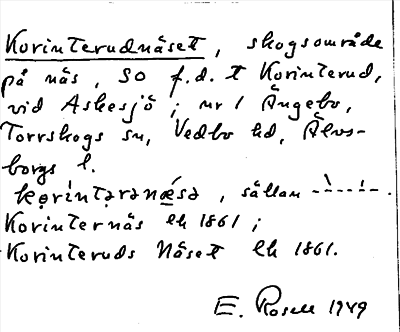 Korinterudnäset, skogsområde
på näs, SO f.d. t Korinterud,
vid Askesjö; nr 1 Ängebo,
Torrskogs sn, Vedbo hd, Älvs-
borgs l.
korintəranæsə, sällan
Korinternäs lh 1861;
Korinteruds Näset lh 1861.
E. Rosell 1949